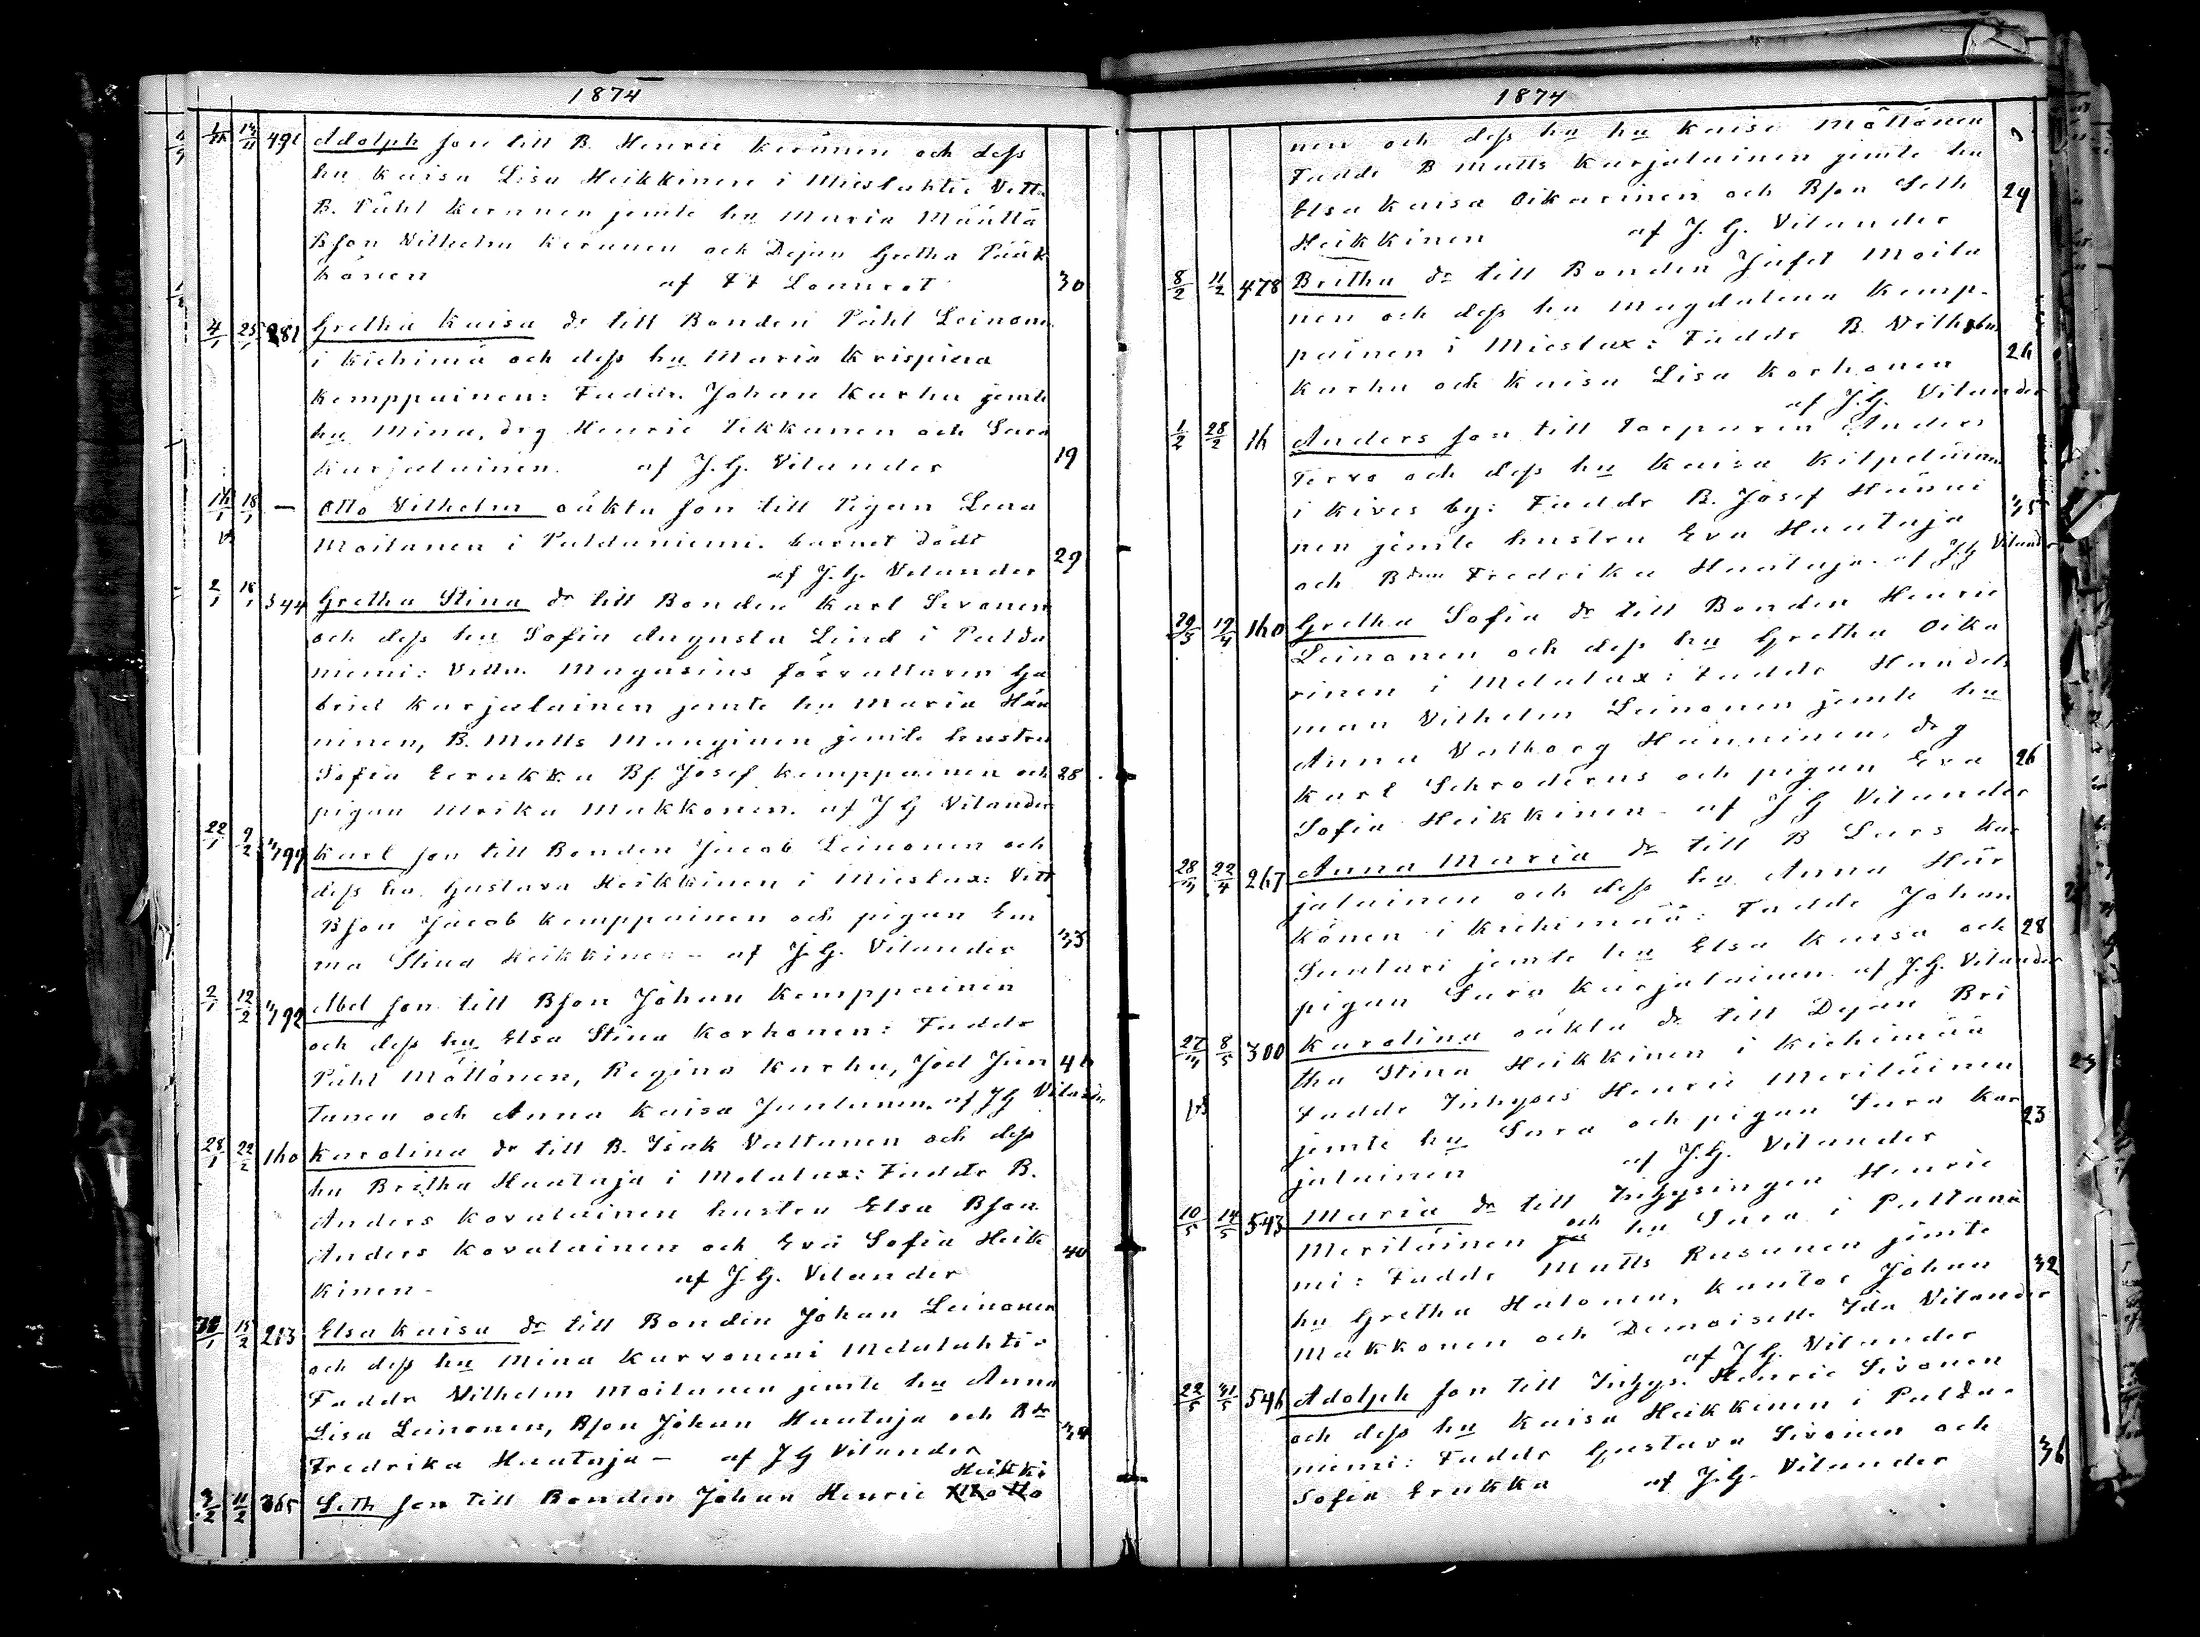 1874
1/11 13/11 491 Adolph son till B. Henric Keränen och dess
hu Kaisa Lisa Heikkinen i Mieslahti: Vittn
B. Påhl Keränen jemte hu Maria Määttä
Bson Vilhelm Keränen och Dejan Gretha Pääk
könen af Lönnrot 30
4/1 25/1 281 Gretha Kaisa dr till Bonden Påhl Leinonen
i Kiehimä och dess hu Maria Krispina
Kemppainen: Faddr. Johan Karhu jemte
hu Mina, drg Henric Tikkanen och Sara
Karjalainen. af J.G. Vilander 19
16/1 18/1 — Otto Vilhelm oäkta son till Pigan Lena
Moilanen i Paldaniemi. barnet dödt
af J. G. Vilander 29
2/1 18/1 544 Gretha Stina dr till Bonden Karl Sivonen
och dess hu Sofia Augusta Lind i Palda
niemi: Vittn. Magasins förvaltaren Ga
briel Karjalainen jemte hu Maria Hän
ninen, B. Matts Manginen jemte hustru
Sofia Eerukka Bs. Josef Kemppainen och 28
pigan Ulrika Makkonen. af J G Vilander
22/1 9/2 499 Karl son till Bonden Jacob Leinonen och
dess hu Gustava Heikkinen i Mieslax: Vitt
Bson Jacob Kemppainen och pigan Em
ma Stina Heikkinen - af J.G. Vilander 33
2/1 12/2 492 Abel son till Bson Johan Kemppainen
och dess hu Elsa Stina Korhonen: Faddr
Påhl Möttönen, Regina Karhu, Joel Jun 46
tunen och Anna Kaisa Juntunen. af JG Vilander
28/1 22/2 160 Karolina dr till B. Isak Valtanen och dess
hu Britha Hautaja i Melalax: Faddr B.
Anders Kovalainen hustru Elsa Bson
Anders Kovalainen och Eva Sofia Heik 40
kinen - af J. G. Vilander
30/1 15/2 213 Elsa Kaisa dr till Bonden Johan Leinonen
och dess hu Mina Karvonen i Melalahti:
Faddr Vilhelm Moilanen jemte hu Anna
Lisa Leinonen, Bson Johan Hautaja och Bdr 34
Fredrika Hautaja — af J G Vilander
Heikki
3/2 11/2 365 Seth son till Bonden Johan Henric
1874
nen och dess hu hu Kaisa Möttönen
Fadde B Matts Karjalainen jemte hu
Elsa Kaisa Oikarinen och Bson Seth 29
Heikkinen af J. G. Vilander
8/2 11/2 478 Britha dr till Bonden Jafet Moila
nen och dess hu Magdalena Kemp-
painen i Mieslax: Fadde B. Vilhelm
Karhu och Kaisa Lisa Korhonen 26
af J.G. Vilander
1/2 28/2 16 Anders son till Torparen Anders
Tervo och dess hu Kaisa Kilpeläinen
i Kives by: Faddr B. Josef Hänni
nen jemte hustru Eva Hautaja 35
och Bdren Fredrika Hautaja. af J.G Vilander
29/3 12/4 160 Gretha Sofia dr till Bonden Henric
Leinonen och dess hu Gretha Oika
rinen i Melalax: Fadde Handels
man Vilhelm Leinonen jemte hu
Anna Valborg Hänninen, drg
Karl Schroderus och pigan Eva 26
Sofia Heikkinen - af J G Vilander
28/3 22/4 267 Anna Maria dr till B Lars Kar
jalainen och dess hu Anna Här
könen i Kiehimää: Fadde Johan
Suutari jemte hu Elsa Kaisa och 28
pigan Sara Karjalainen. af J.G. Vilander
27/4 8/5 300 Karolina oäkta dr till Dejan Bri
tha Stina Heikkinen i Kiehimää
Fadde Inhyses Henric Meriläinen
jemte hu Sara och pigan Sara Kar 23
jalainen af J.G. Vilander
10/5 14/5 543 Maria dr till Inhysingen Henric
Meriläinen och hu Sara i Paltani
mi: Fadde Matts Rusanen jemte
hu Gretha Halonen, Kantor Johan 32
Makkonen och Demoiselle Ida Vilander
af J G. Vilander
22/5 31/5 546 Adolph son till Inhys. Henric Sivonen
och dess hu Kaisa Heikkinen i Palda-
niemi: Faddr Gustava Sivonen och 36
Sofia Erukka af J.G. Vilander